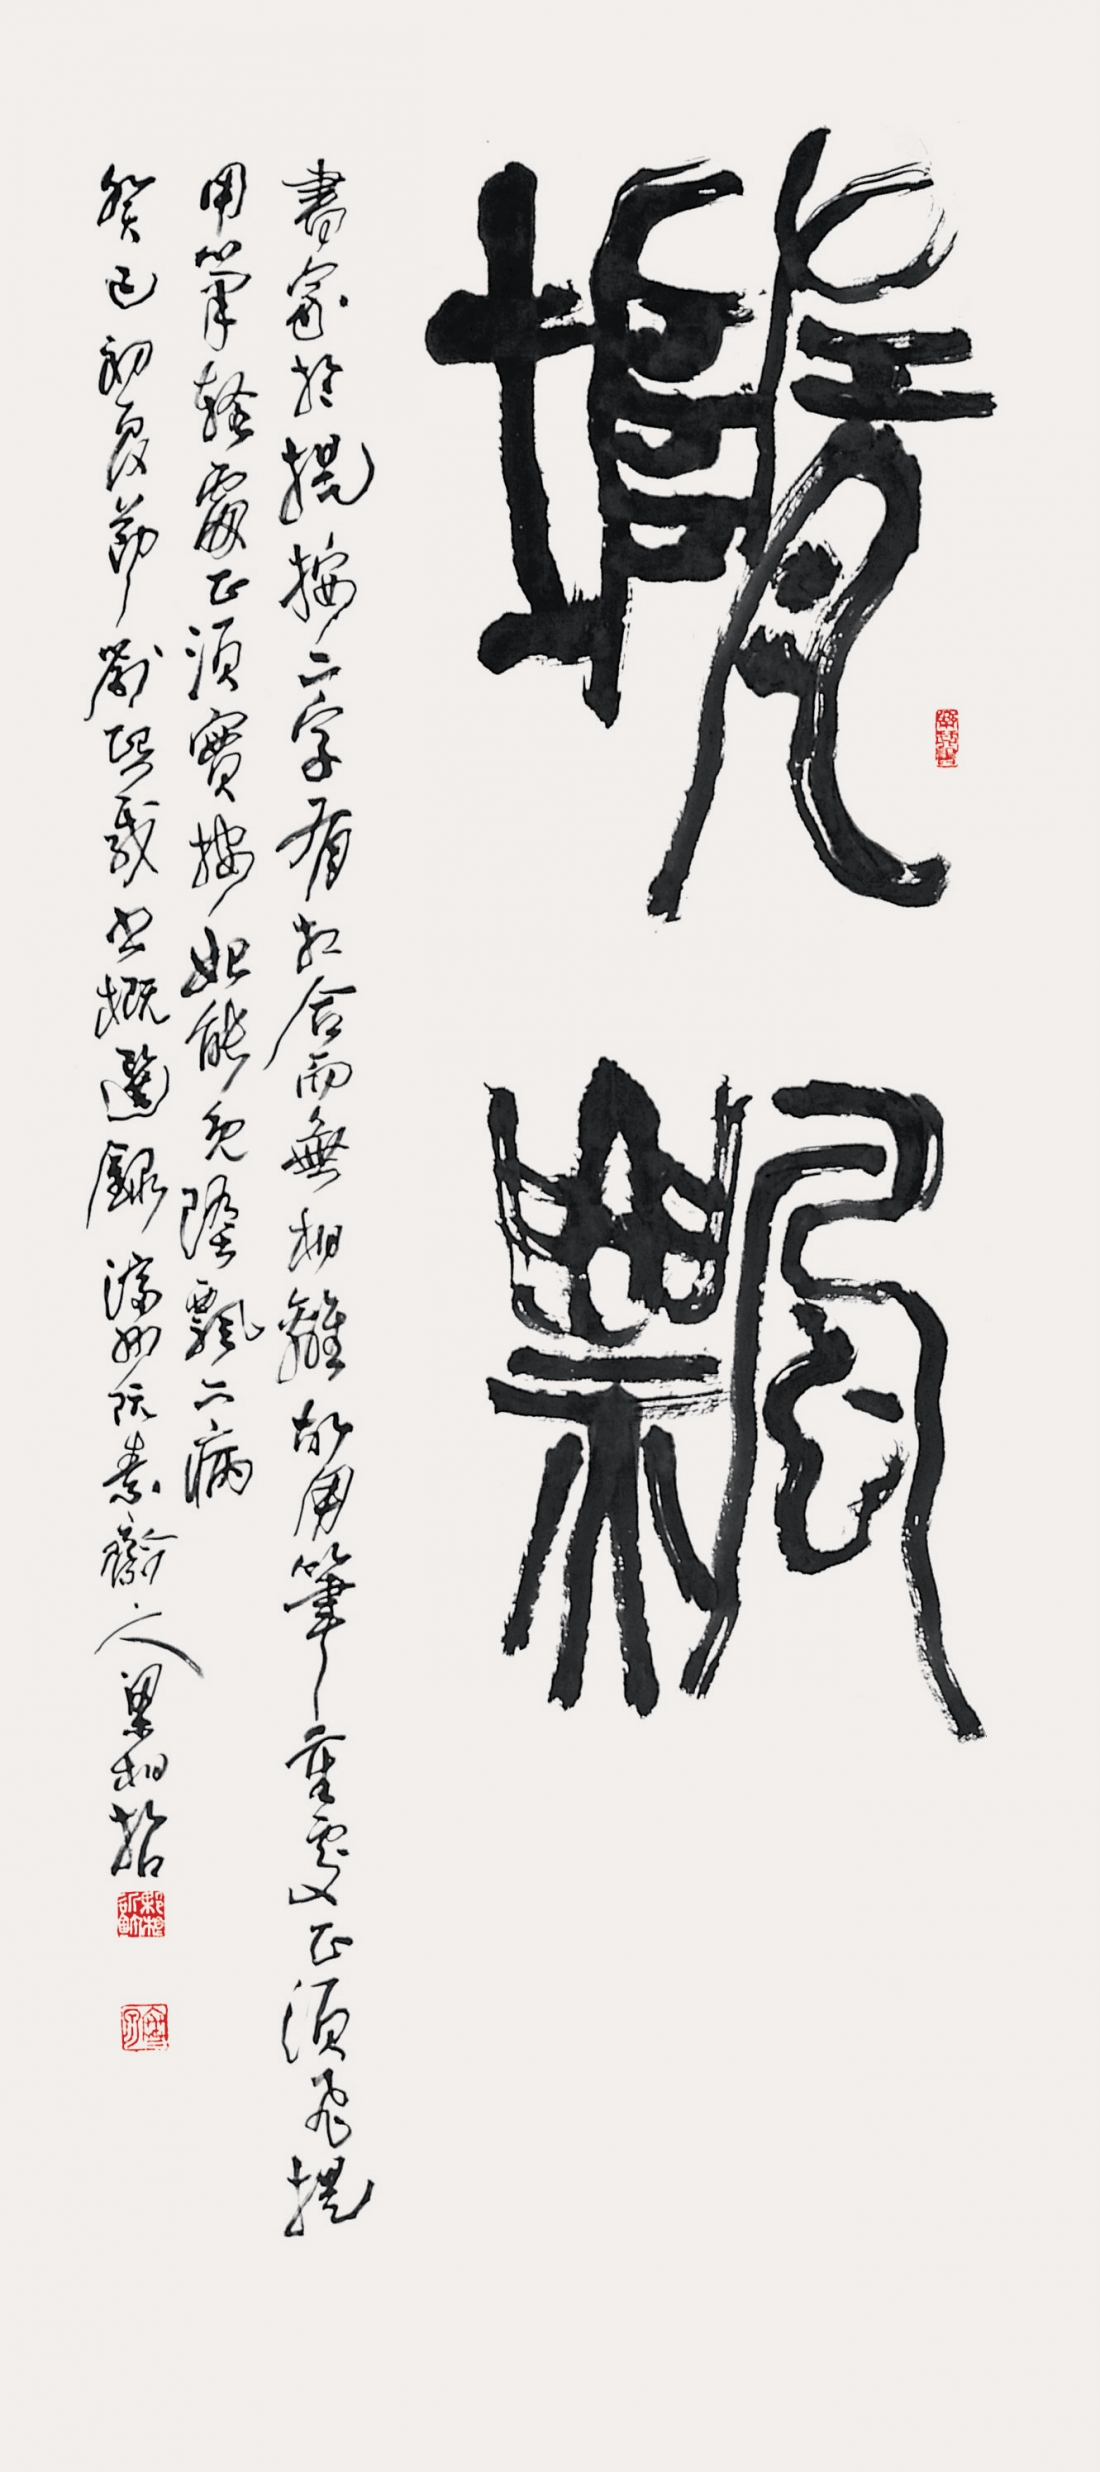 墮飄
書家於提按二字有相合而無相離故用筆重處正須飛提
用筆輕處正須實按始能免墮飄二病
癸巳初夏節劉熙載書概選錄 素齋 人梁相